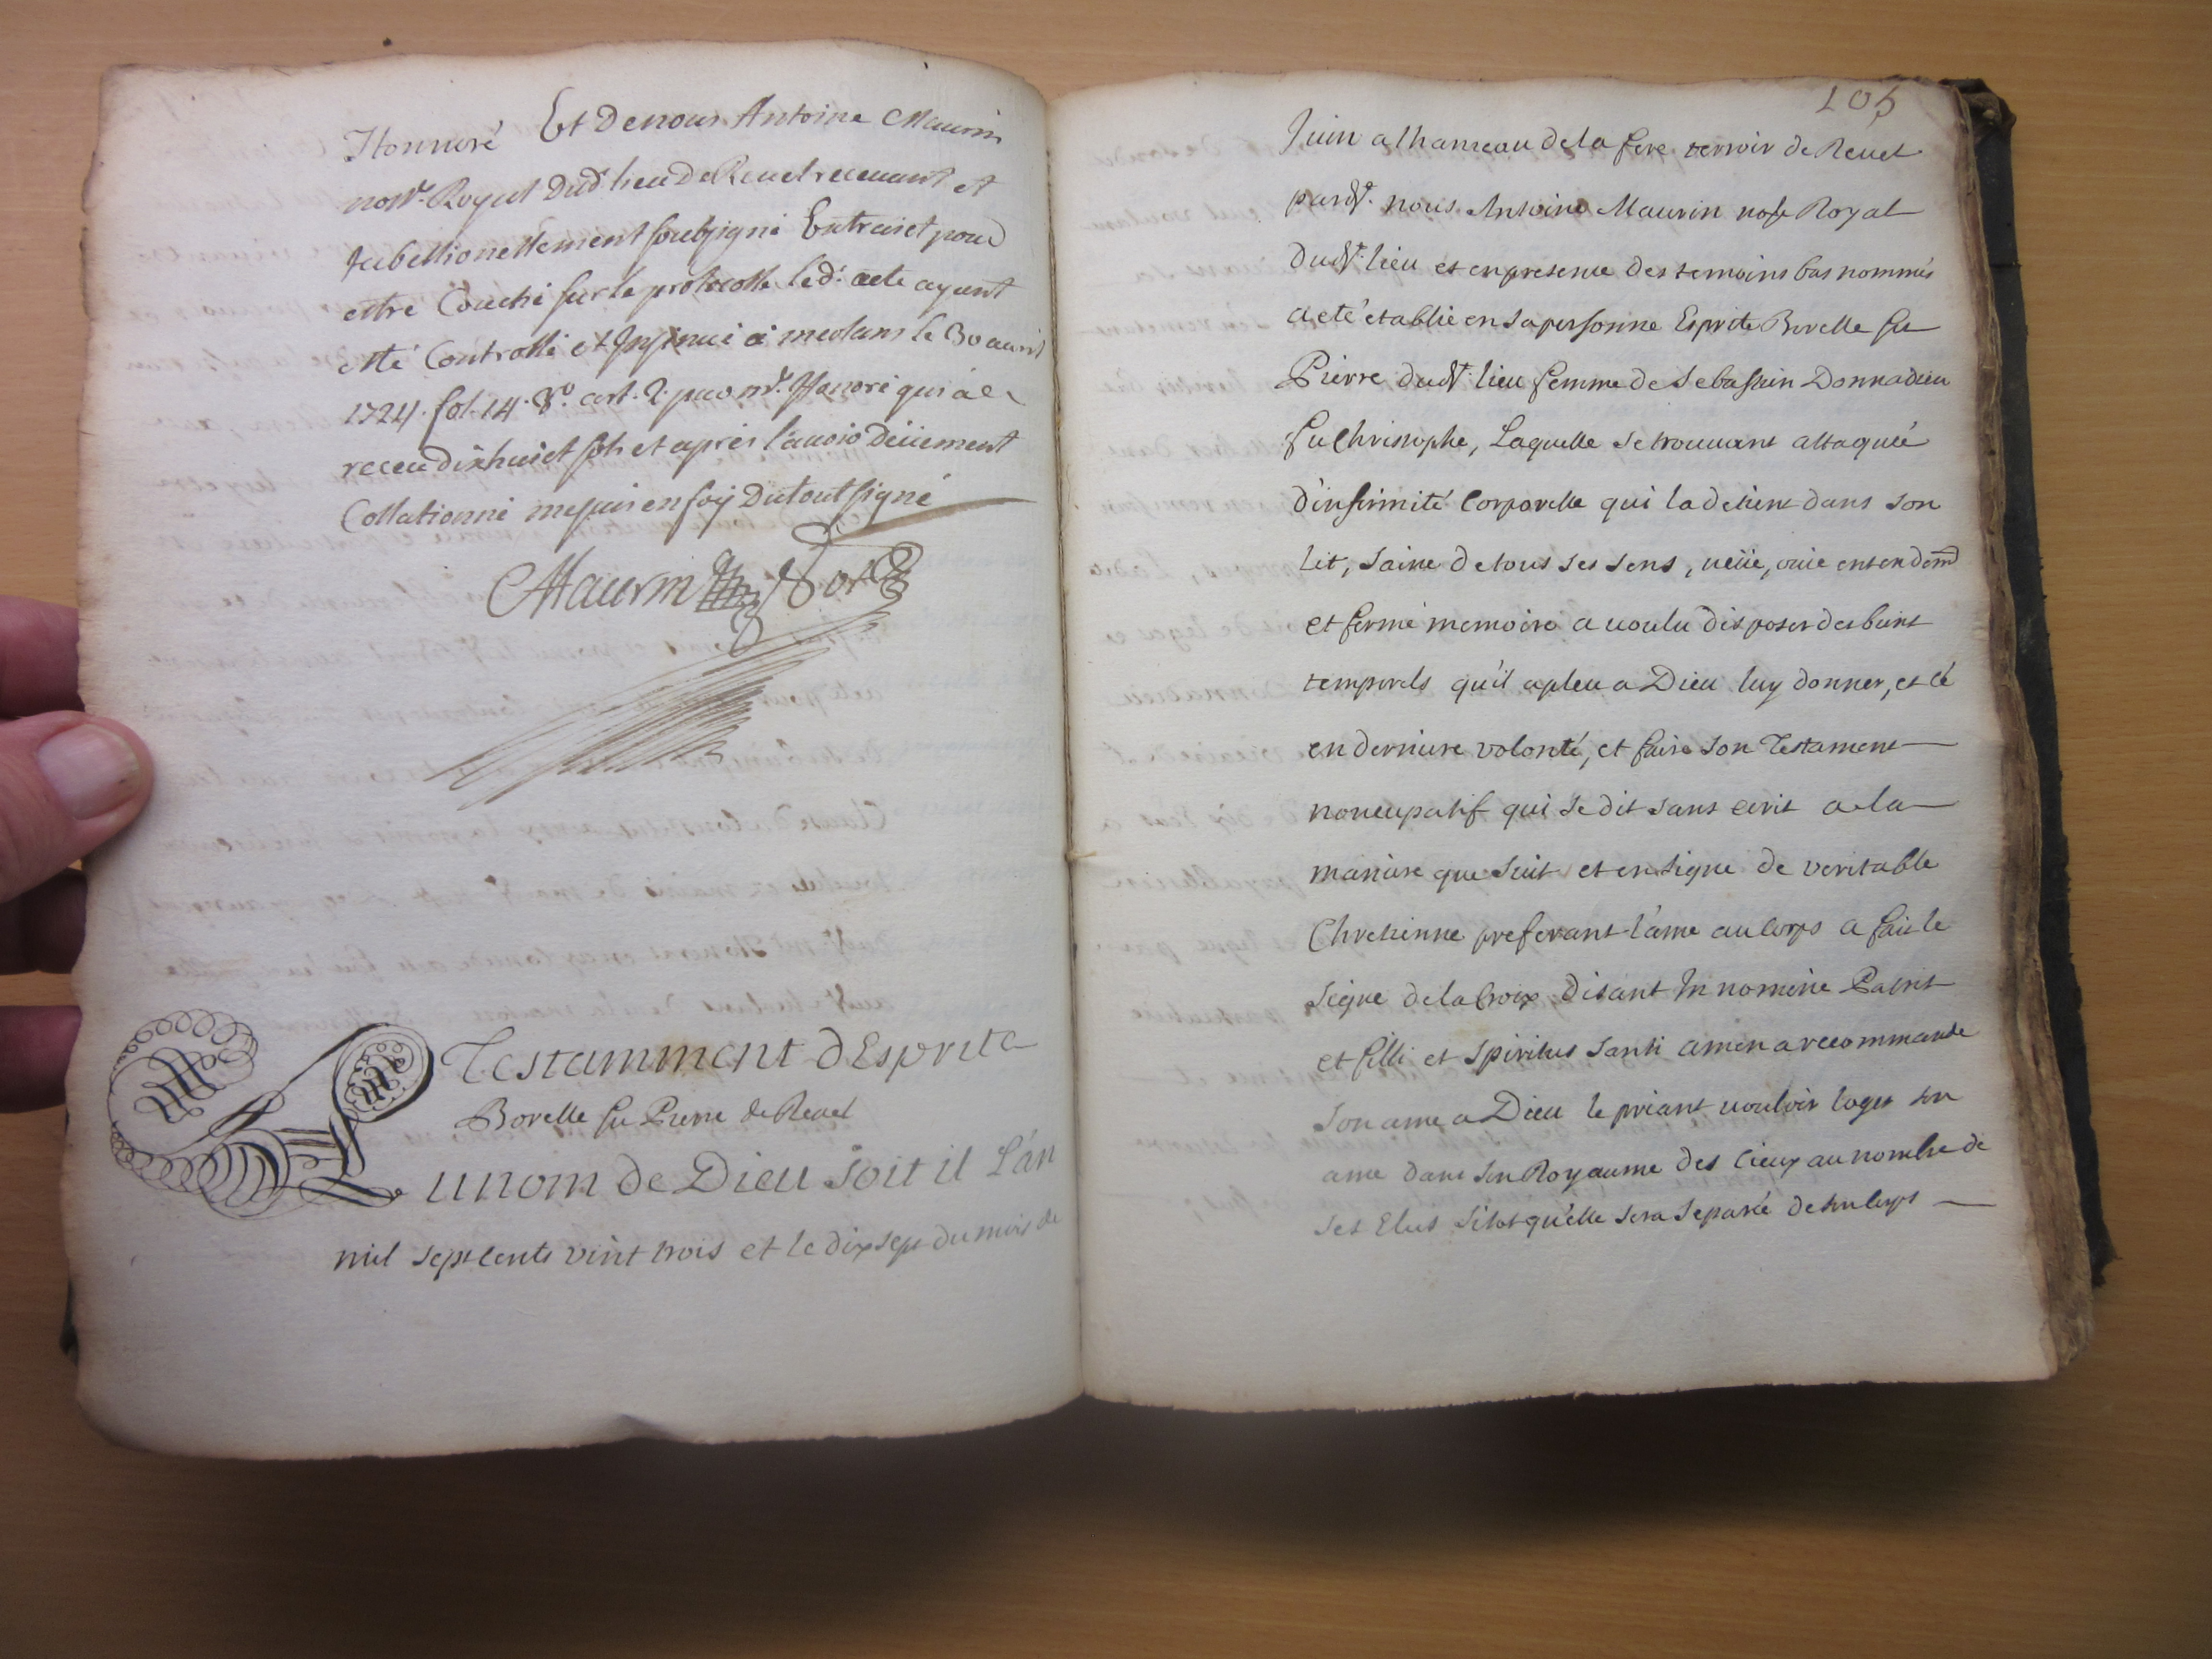 Honnoré Et de nous Antoine Maurin
nore. Royal dud. lieu de Revel recevant et
tabellionellement soubsigné Extrait pour
estre Couché sur le protocolle led. acte ayant
esté Controllé et Insinué a meolans le 30 avril
1724. fol. 14. Vo. art. 2. par mr. Honoré qui a
receu dixhuict sols et apres l'avoir deüement
Collationné me suis en foy du tout signé
Maurin Nore
Testamment d'Esprite
Borelle fu Pierre de Revel
Au nom de Dieu soit il L'an
mil sept cents vint trois et le dix sept du mois de
105
Juin a lhameau de la fere terroir de Revel
pardt. nous Antoine Maurin nore Royal
dudt. lieu et en presence des temoins bas nommés
a eté etablie en sa personne Esprite Borelle fu
Pierre dudt. lieu femme de Sebastien Donnadieu
fu Christophe, Laquelle se trouvant attaquée
d'infirmité Corporelle qui la detient dans son
lit, saine de tous ses sens, veüe, ouie entendemt
et ferme memoire a voulu disposer des biens
temporels qu'il a pleu a Dieu luy donner, et cé
en derniere volonté, et faire son Testament
noncupatif qui se dit sans ecrit a la
maniere que suit et en signe de veritable
Chretienne preferant l'ame au corps a fait le
signe de la Croix disant In nomine Patris
et filli et spiritus santi amen a recommande
son ame a Dieu le priant vouloir loger son
ame dans son Royaume des Cieux au nombre de
ses Elus sitot qu'elle sera separée de son corps